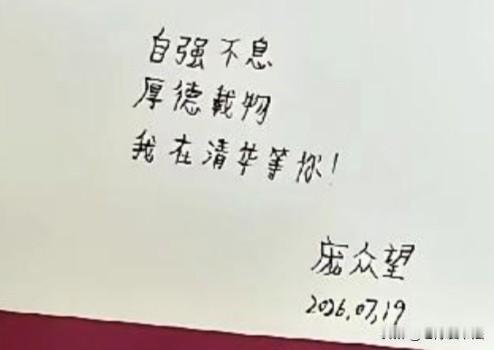 自强不息
厚德载物
我在清华等你!
庞众望
2026.07.19